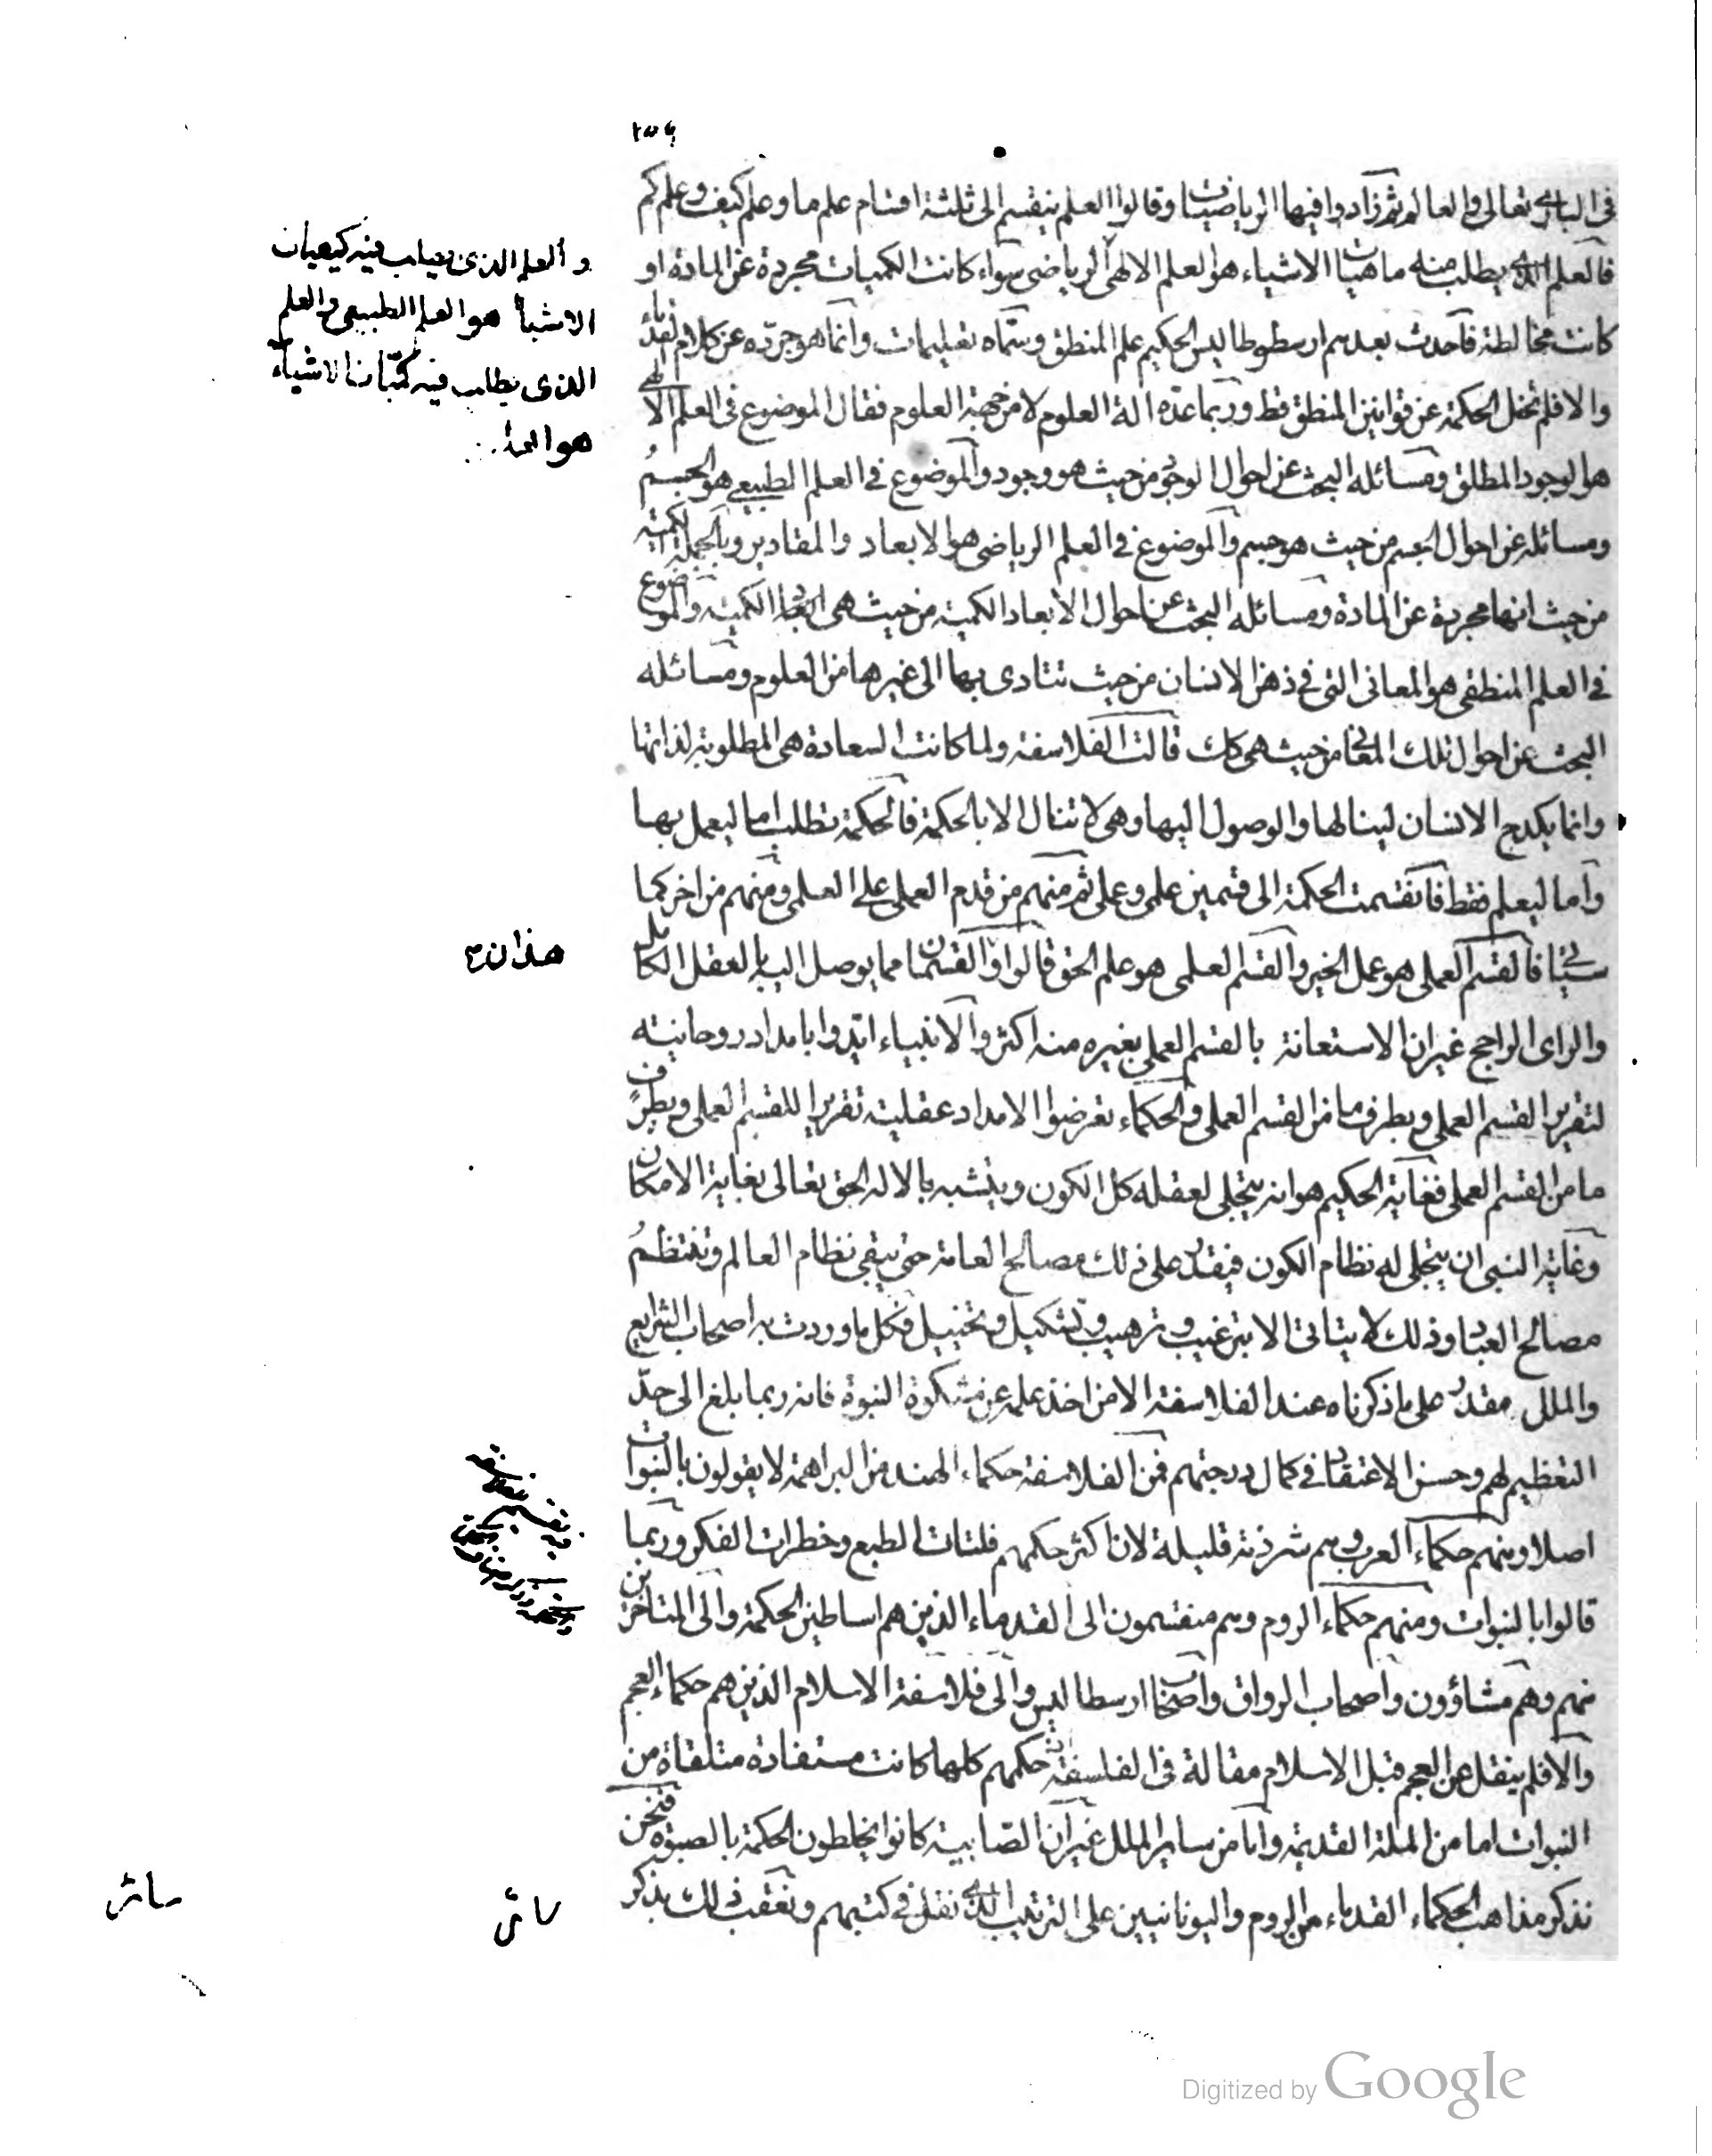 في الباري تعالى والعالم ثم زادوا فيها الرياضيات وقالوا العلم ينقسم الى ثلثة اقسام علم ما وعلم كيف وعلم كم
فالعلم الذي يطلب منه ماهيات الاشياء هو العلم الالهي الرياضي سواء كانت الكميات مجردة عن المادة او
كانت مخالطة فاحدث بعدهم ارسطوطاليس الحكيم علم المنطق وسماه تعليمات وانما هو جرده عن كلام القدماء
والا فلم تخل الحكمة عن قوانين المنطق قط وربما عده الة العلوم لا من جهة العلوم فقال الموضوع في العلم الالهي
هو الوجود المطلق ومسائله البحث عن احوال الوجود من حيث هو وجود والموضوع في العلم الطبيعي هو الجسمُ
ومسائله عن احوال الجسم من حيث هو جسم والموضوع في العلم الرياضي هو الابعاد والمقادير وبالجملة الكمية
من حيث انها مجردة عن المادة ومسائله البحث عن احوال الابعاد الكمية من حيث هي ابعاد الكمية والموضوع
في العلم المنطقي هو المعاني التي في ذهن الانسان من حيث تتادى بها الى غيرها من العلوم ومسائله
البحث عن احوال تلك المعاني من حيث هي كك قالت الفلاسفة ولما كانت السعادة هي المطلوبة لذاتها
وانما يكدح الانسان لينالها والوصول اليها وهي لا تنال الا بالحكمة فالحكمة تطلب اما ليعمل بها
واما ليعلم فقط فانقسمت الحكمة الى قسمين علمي وعملي ثم منهم من قدم العملي على العلمي ومنهم من اخر كما
سيأتي فالقسم العملي هو عمل الخير والقسم العلمي هو علم الحق قالوا والقسمان مما يوصل اليه بالعقل الكامل
والراي الراجح غير ان الاستعانة بالقسم العملي بغيره منه اكثر والانبياء ايدوا بامداد روحانيته
لتقرير القسم العملي وبطرف ما من القسم العملي والحكماء تعرضوا الامداد عقلية تقريرا للقسم العملي وبطرف
ما من القسم العملي فغاية الحكيم هو انه يتجلى لعقله كل الكون ويتشبه بالاله الحق تعالى بغاية الامكان
وغاية النبي ان يتجلى له نظام الكون فيقدر على ذلك مصالح العامة حتى يبقى نظام العالم وتنتظمُ
مصالح العباد وذلك لا يتاتى الا بترغيب وترهيب وتشكيل وتخييل فكل ما وردت به اصحاب الشرايع
والملل مقدر على ما ذكرناه عند الفلاسفة الا من اخذ علمه عن مشكوة النبوة فانه ربما بلغ الى حدّ
التعظيم لهم وحسن الاعتقاد في كمال درجتهم فمن الفلاسفة حكماء الهند من البراهمة لا يقولون بالنبوات
اصلا ومنهم حكماء العرب وهم شرذمة قليلة لان اكثر حكمهم فلتات الطبع وخطرات الفكر وربما
قالوا بالنبوات ومنهم حكماء الروم وهم منقسمون الى القدماء الذين هم اساطين الحكمة والى المتاخرين
منهم وهم مشاؤون واصحاب الرواق واصحاب ارسطاليس والى فلاسفة الاسلام الذين هم حكماء العجم
والا فلم ينقل عن العجم قبل الاسلام مقالة في الفلسفة حكمهم كلها كانت مستفادة متلقاة من
النبوات اما من الملة القديمة واما من ساير الملل غير ان الصابية كانوا يخلطون الحكمة بالصبوة فنحن
نذكر مذاهب الحكماء القدماء من الروم واليونانيين على الترتيب الذي نقل في كتبهم ونعقب ذلك بذكر
والعلم الذي يطلب فيه كيفيات
الاشيأ هو العلم الطبيعي والعلم
الذي يطلب فيه كميات الاشيأ
هو
سائر
Digitized by Google